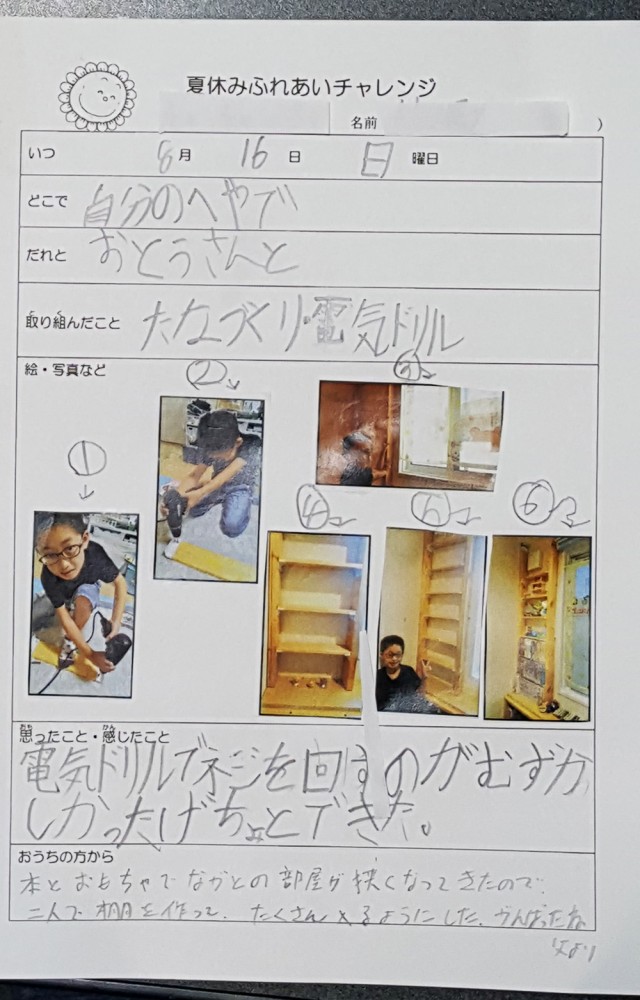 夏休みふれあいチャレンジ
名前 )
いつ 8月 16日 日曜日
どこで 自分のへやで
だれと おとうさんと
取り組んだこと たなづくり・電気ドリル
絵・写真など
② ③
①
④ ⑤ ⑥
思ったこと・感じたこと
電気ドリルでネジを回すのがむずか
しかったげちょとできた。
おうちの方から
本とおもちゃでながとの部屋が狭くなってきたので、
二人で棚を作って、たくさん入るようにした。がんばったね
父より